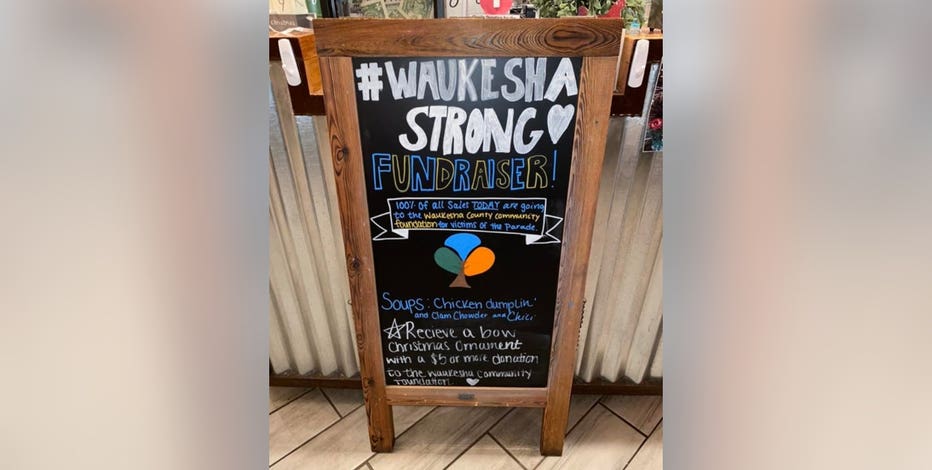 #WAUKESHA
STRONG
FUNDRAISER!
100% of all Sales TODAY are going
to the Waukesha County Community
foundation for victims of the Parade.
Soups: Chicken dumplin'
and Clam Chowder and Chili
Recieve a bow
Christmas Ornament
with a $5 or more donation
to the Waukesha Community
Foundation.